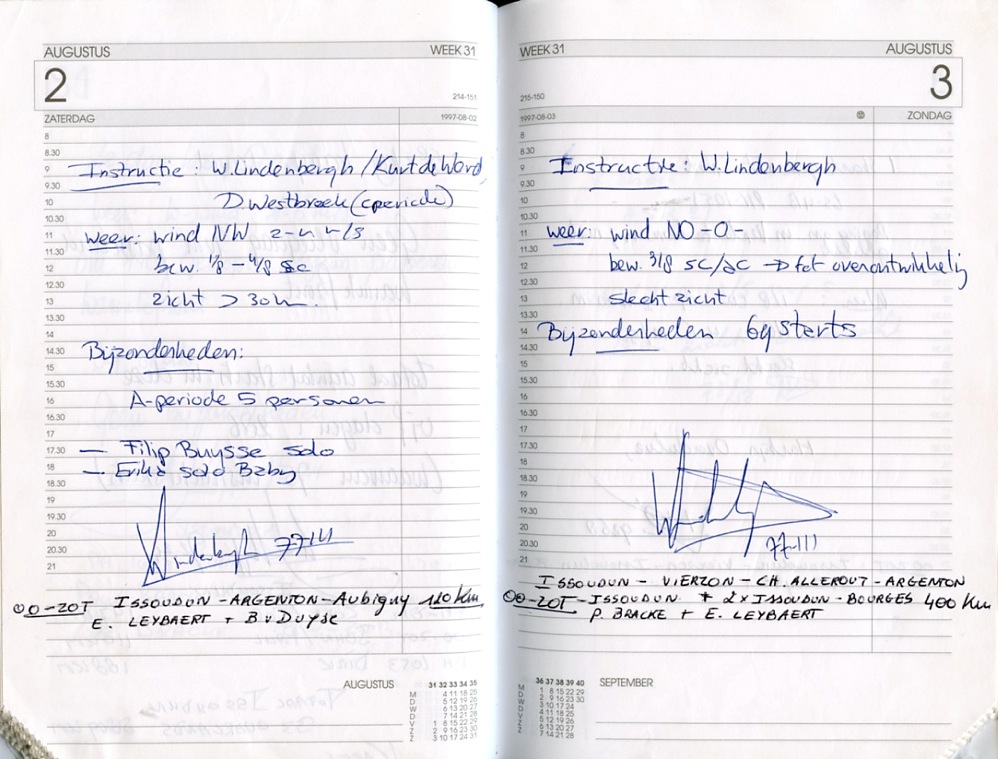 AUGUSTUS WEEK 31
2
214-151
ZATERDAG 1997-08-02
8
8.30
9 Instructie: W.Lindenbergh/Kurt de Word
9.30
10 D Westbroek (cperiode)
10.30
11 weer: wind NW 2-4 m/s
11.30
12 bew. 1/8 - 4/8 sc
12.30
13 zicht > 30
13.30
14
14.30 Bijzonderheden:
15
15.30
16 A-periode 5 personen
16.30
17
17.30 — Filip Buysse solo
18 — Erika solo Baby
18.30
19
19.30
20 Lindenbergh 77-111
20.30
21
OO-ZOT ISSOUDUN-ARGENTON-Aubigny 110 km
E. LEYBAERT + B v Duyse
AUGUSTUS
31 32 33 34 35
M 4 11 18 25
D 5 12 19 26
W 6 13 20 27
D 7 14 21 28
V 1 8 15 22 29
Z 2 9 16 23 30
Z 3 10 17 24 31
WEEK 31 AUGUSTUS
3
215-150
1997-08-03 ZONDAG
8
8.30
9 Instructie: W.Lindenbergh
9.30
10
10.30
11 weer: wind NO-O-
11.30
12 bew. 3/8 sc/ac → tot overontwikkelij
12.30
13 slecht zicht
13.30
14 Bijzonderheden 69 starts
14.30
15
15.30
16
16.30
17
17.30
18
18.30
19
19.30
20
20.30 77-111
21
ISSOUDUN - VIERZON - CH. ALLEROUT - ARGENTON
OO-ZOT - ISSOUDUN + 2x ISSOUDUN - BOURGES 400 Km
P. BRACKE + E. LEYBAERT
SEPTEMBER
36 37 38 39 40
M 1 8 15 22 29
D 2 9 16 23 30
W 3 10 17 24
D 4 11 18 25
V 5 12 19 26
Z 6 13 20 27
Z 7 14 21 28